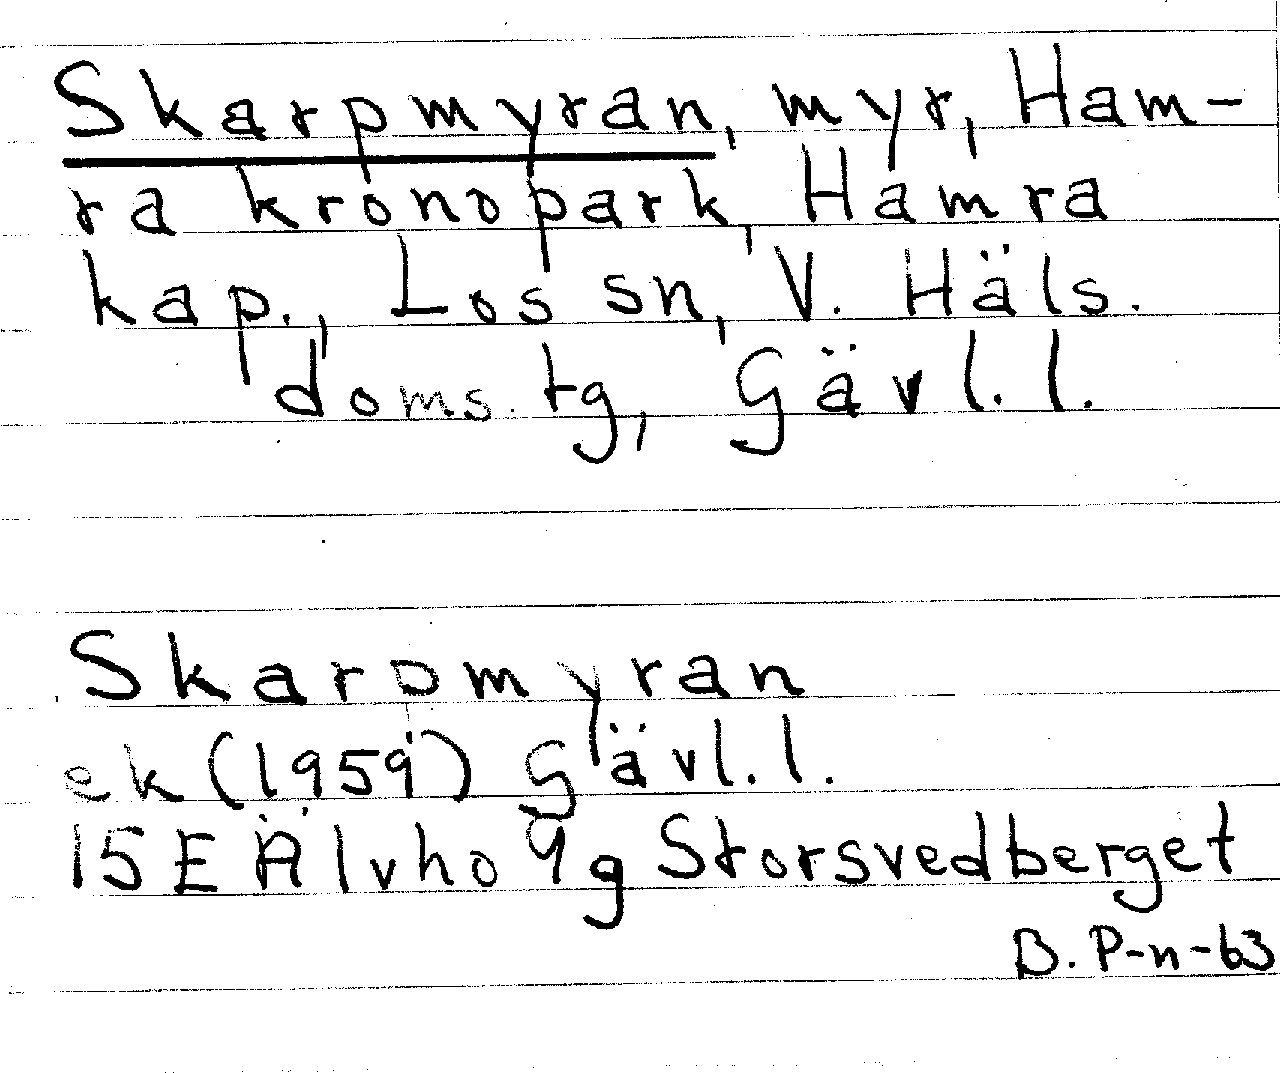 Skarpmyran, myr, Ham-
ra kronopark, Hamra
kap., Los sn, V. Häls.
doms. tg, Gävl. l.
Skarpmyran
ek (1959) Gävl. l.
15E Älvho 9g Storsvedberget
B. P-n-63